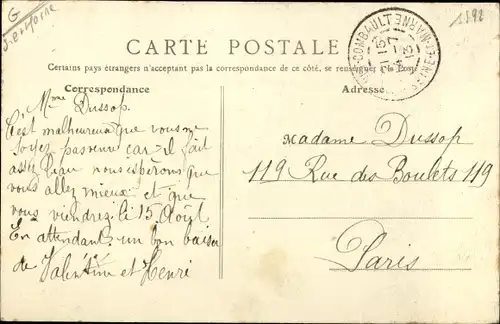 G
S-et-Marne
1192
CARTE POSTALE
COMBAULT
SEINE-ET-MARNE
Certains pays étrangers n'acceptant pas la correspondance de ce côté, se renseigner à la Poste
Correspondance
Adresse
Mme Dussop.
C'est malheureux que vous ne
soyez pas venue car il fait
assez beau nous espérons que
vous allez mieux et que
vous viendrez le 15 Août
En attendant un bon baiser
de Valentine et Henri
Madame Dussop
119 Rue des Boulets 119
Paris